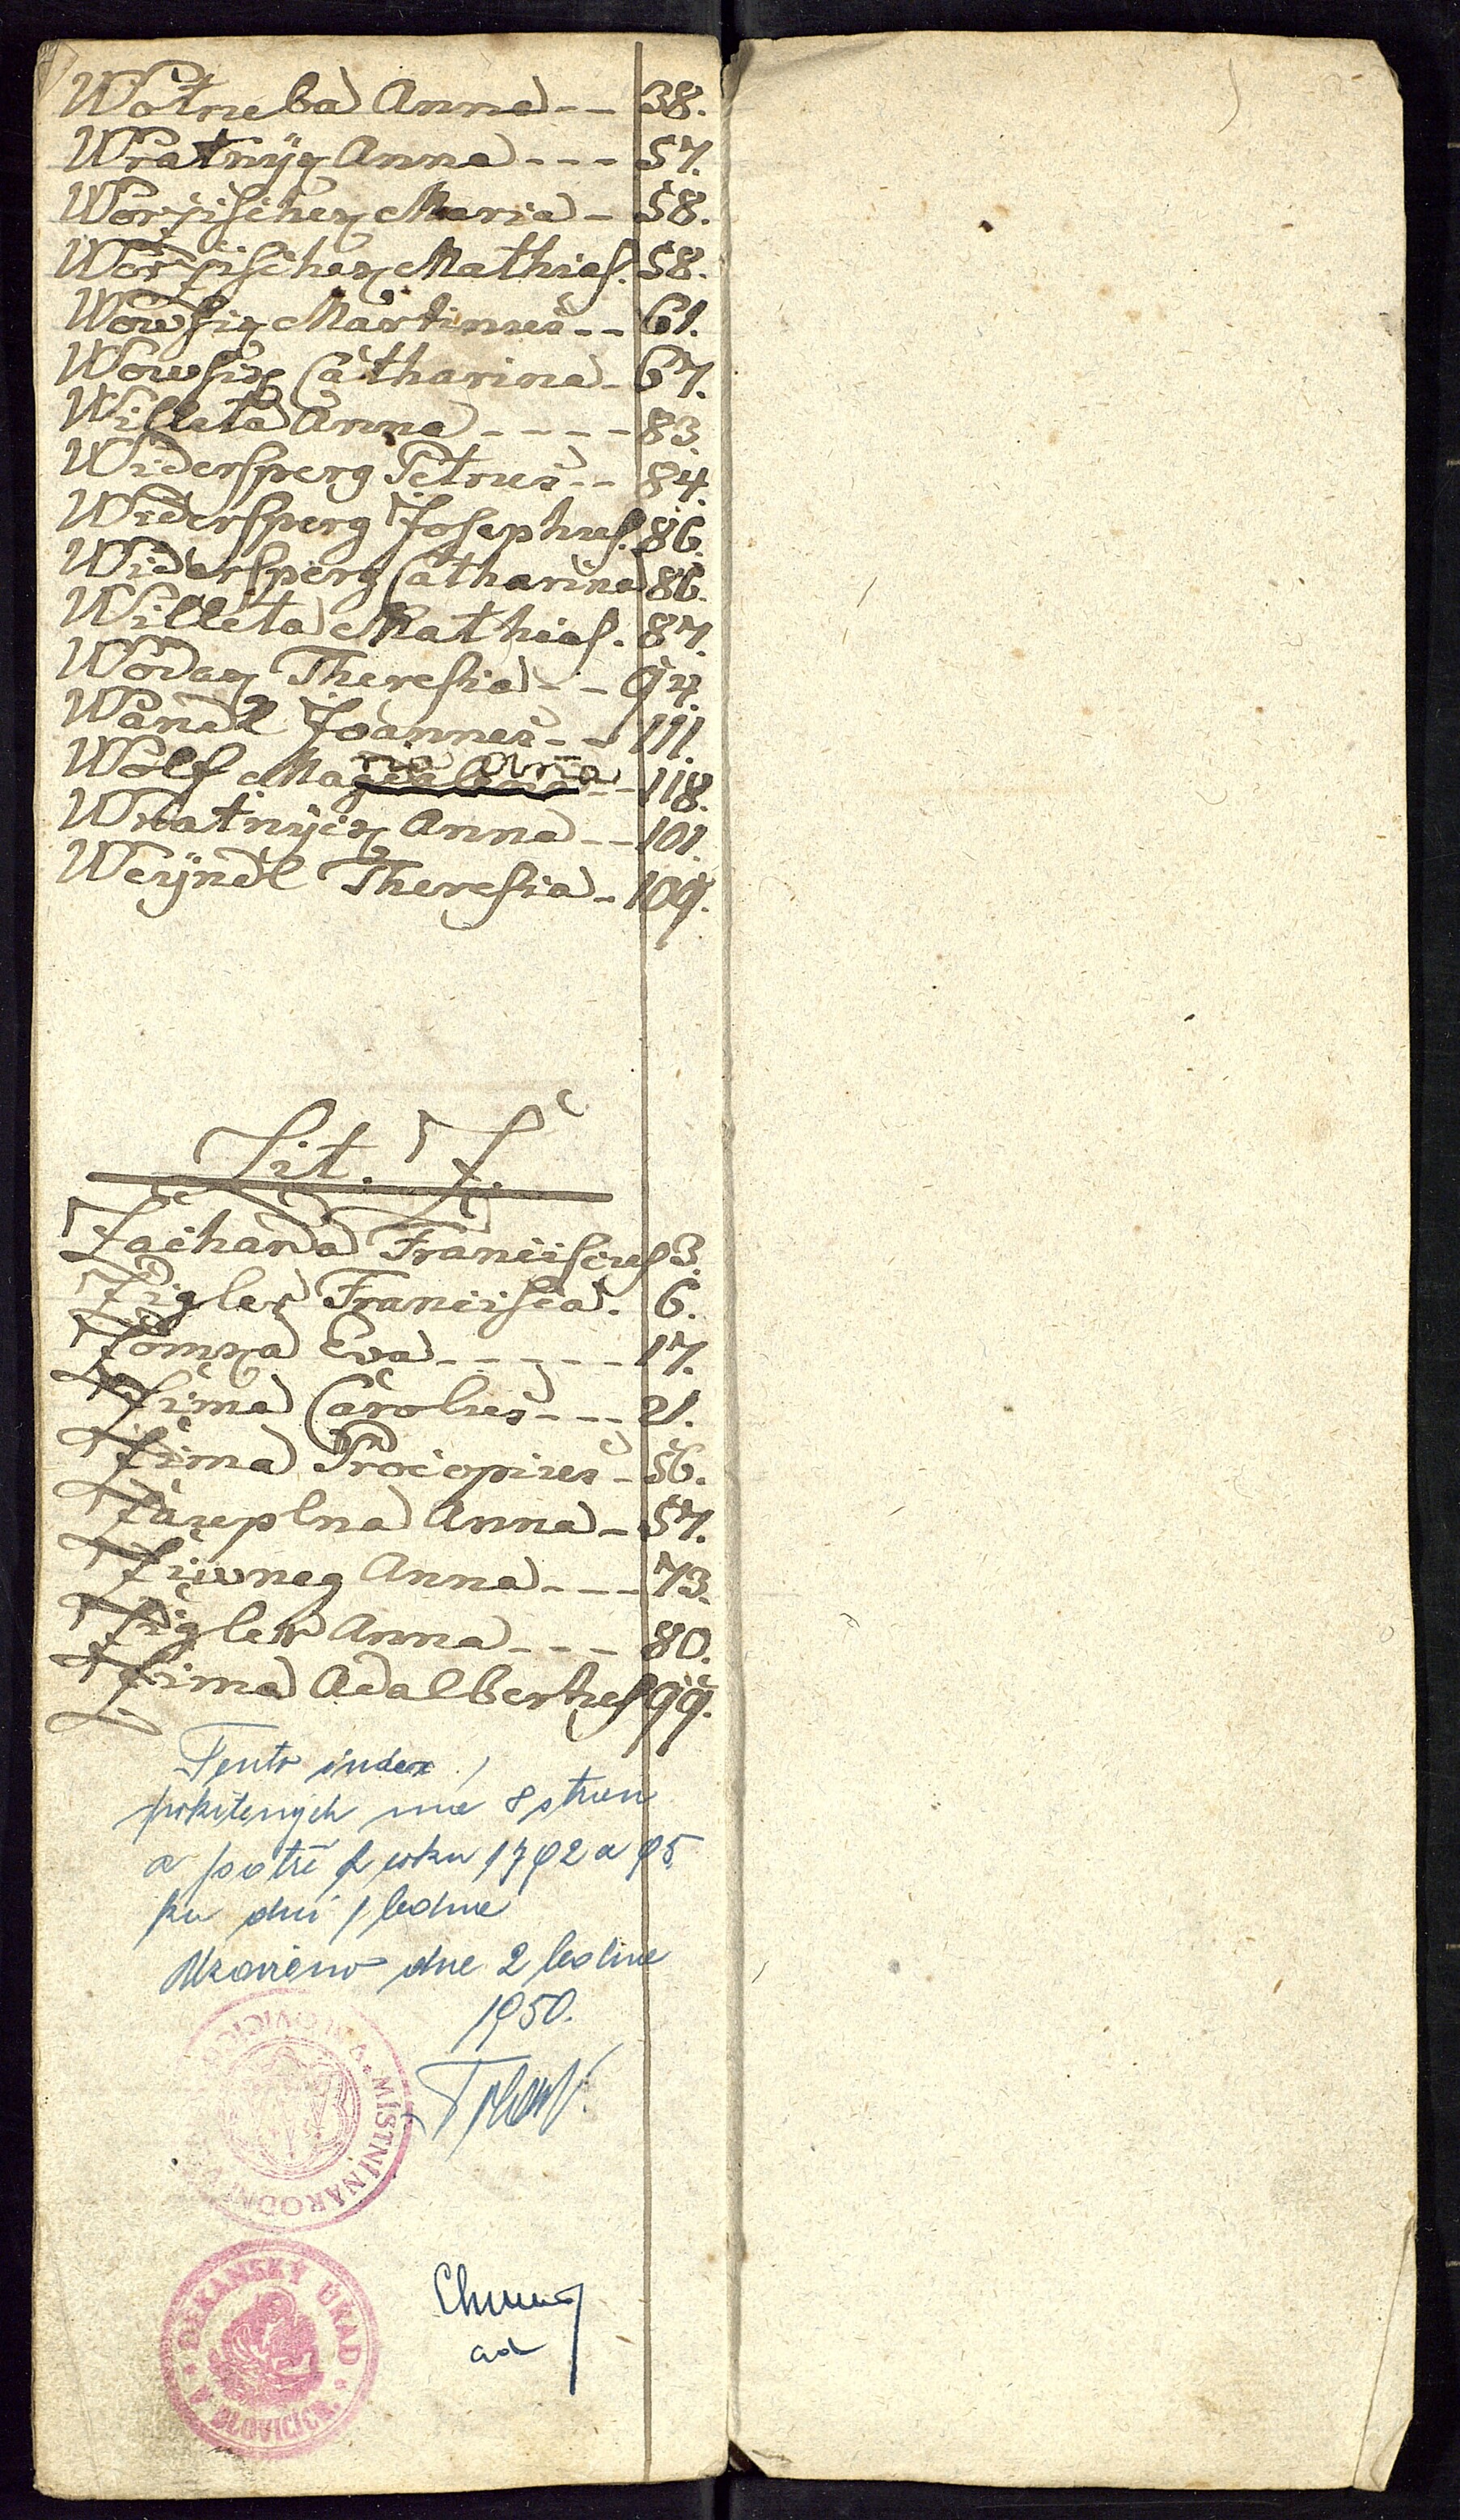 Wotrueba Anna -- 38.
Wratnÿz Anna --- 57.
Worzischez Maria - 58.
Worzischez Mathias. 58.
Wowsiz Martinus -- 61.
Wowsiz Catharina - 67.
Willeta Anna ---- 83.
Widersperg Petrus -- 84.
Widersperg Josephus. 86.
Widersperg Catharina 86.
Willeta Mathias. 87.
Wodaz Theresia -- 94.
Wandl Joannes -- 111.
Wolf Maria Anna -- 118.
Wratnÿcz Anna -- 101.
Weÿndl Theresia - 109.
Lit. Z.
Zachara Franciscus 3.
Zigler Francisca. 6.
Zomza Eva ----- 17.
Zima Carolus --- 21.
Zima Procopius - 56.
Zaueplna Anna - 57.
Ziwneg Anna --- 73.
Zigler Anna --- 80.
Zima Adalbertus 99.
Tento index
pokřtených má 8 stran
a patří k roku 1792 a 95
ku dni 1 ledna
Uzavřeno dne 2 ledna
1950.
MÍSTNÍ NÁRODNÍ
DĚKANSKÝ ÚŘAD
V BLOVICÍCH